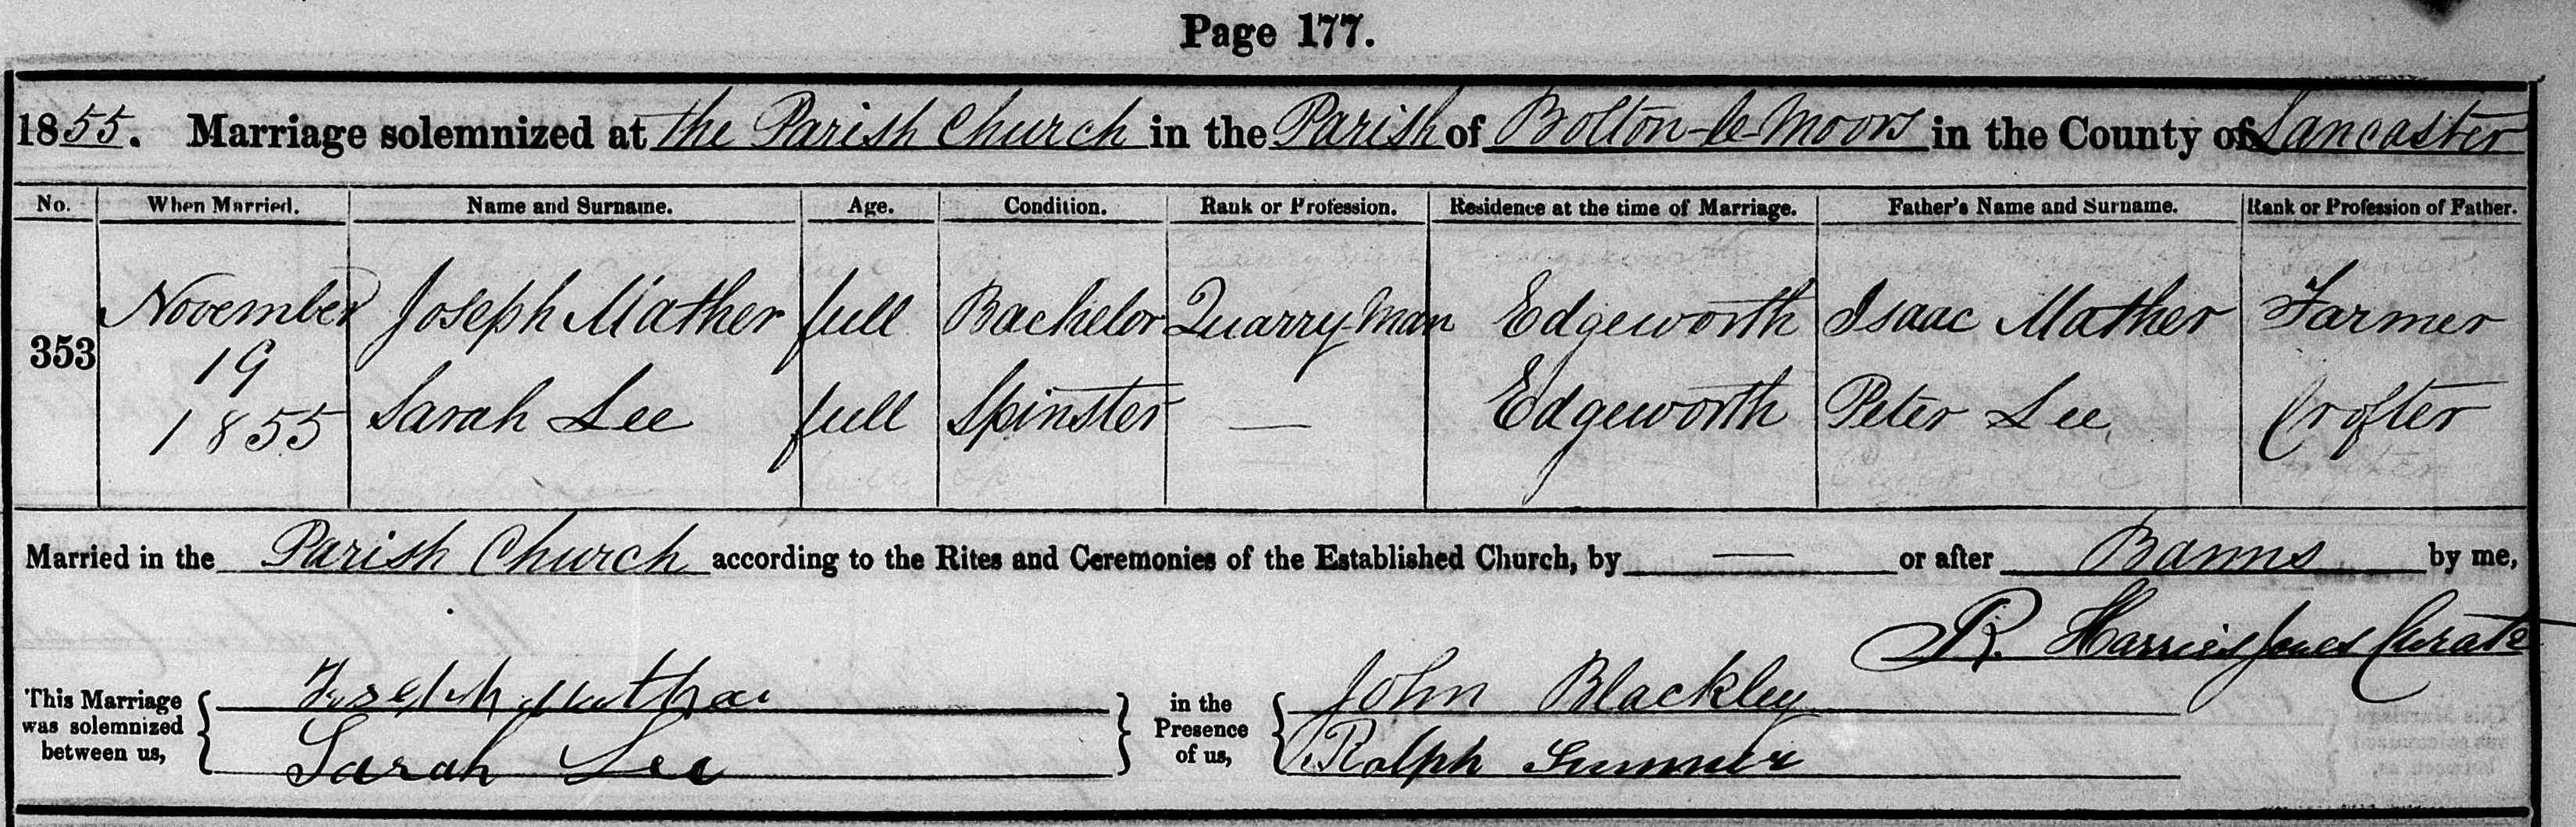 Page 177.
1855. Marriage solemnized at the Parish Church in the Parish of Bolton-le-Moors in the County of Lancaster
No. When Married. Name and Surname. Age. Condition. Rank or Profession. Residence at the time of Marriage. Father's Name and Surname. Rank or Profession of Father.
353 November 19 1855 Joseph Mather full Bachelor Quarry-man Edgeworth Isaac Mather Farmer
Sarah Lee full Spinster — Edgeworth Peter Lee Crofter
Married in the Parish Church according to the Rites and Ceremonies of the Established Church, by — or after Banns by me,
R. Harries Jones Curate
This Marriage was solemnized between us, Joseph Mather in the Presence of us, John Blackley
Sarah Lee Ralph Sumner